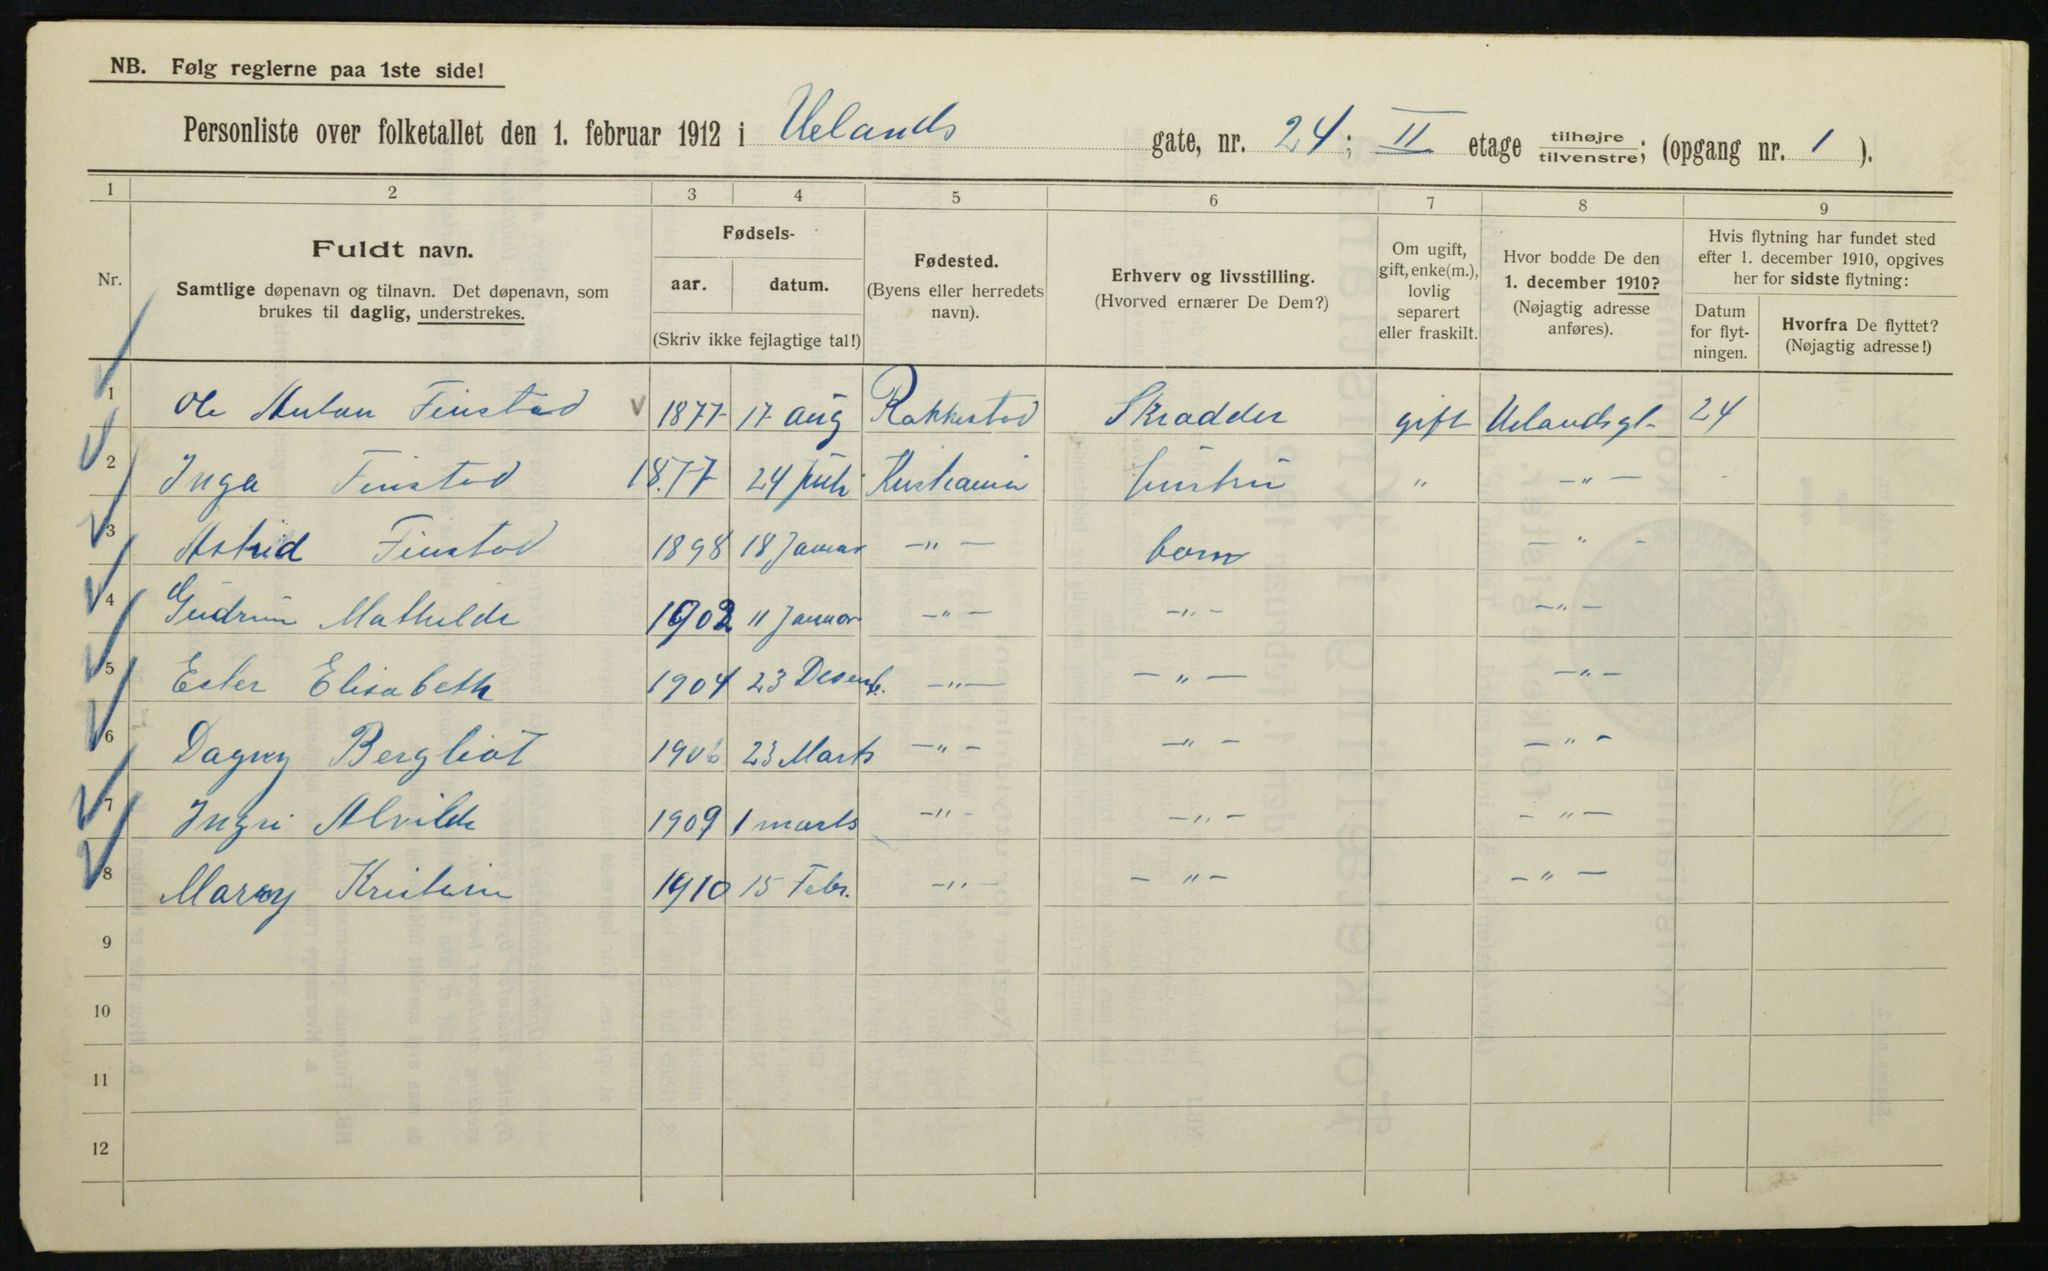 NB. Følg reglerne paa 1ste side!
Personliste over folketallet den 1. februar 1912 i Uelands gate, nr. 24; II etage tilhøjre/tilvenstre; (opgang nr. 1 ).
1 2 3 4 5 6 7 8 9
Nr.
Fuldt navn.
Samtlige døpenavn og tilnavn. Det døpenavn, som
brukes til daglig, understrekes.
Fødsels-
aar. datum.
(Skriv ikke fejlagtige tal!)
Fødested.
(Byens eller herredets
navn).
Erhverv og livsstilling.
(Hvorved ernærer De Dem?)
Om ugift,
gift, enke(m.),
lovlig
separert
eller fraskilt.
Hvor bodde De den
1. december 1910?
(Nøjagtig adresse
anføres).
Hvis flytning har fundet sted
efter 1. december 1910, opgives
her for sidste flytning:
Datum
for flyt-
ningen.
Hvorfra De flyttet?
(Nøjagtig adresse!)
1 Ole Anton Finstad v 1877 17 aug Rakkestad Skradder gift Uelandsgt- 24
2 Inga Finstad 1877 24 juli Kristiania hustru " -"-
3 Astrid Finstad 1898 18 Januar -"- barn -"-
4 Gudrun Mathilde 1902 11 Januar -"- -"- -"-
5 Ester Elisabeth 1904 23 Desemb. -"- -"- -"-
6 Dagny Bergliot 1906 23 Marts -"- -"- -"-
7 Ingri Alvilde 1909 1 marts -"- -"- -"-
8 Marry Kristine 1910 15 Febr. -"- -"- -"-
9
10
11
12